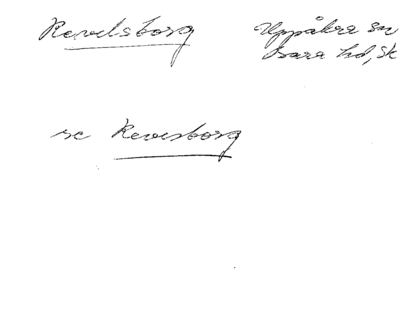 Revelsborg
Uppåkra sn
Bara hd, Sk
se Reversborg